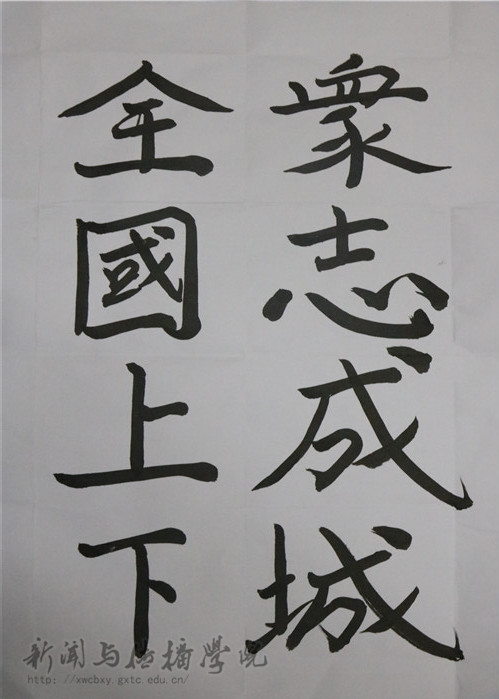 眾志成城
全國上下
新闻与传播学院
http://xwcbxy.gxtc.edu.cn/